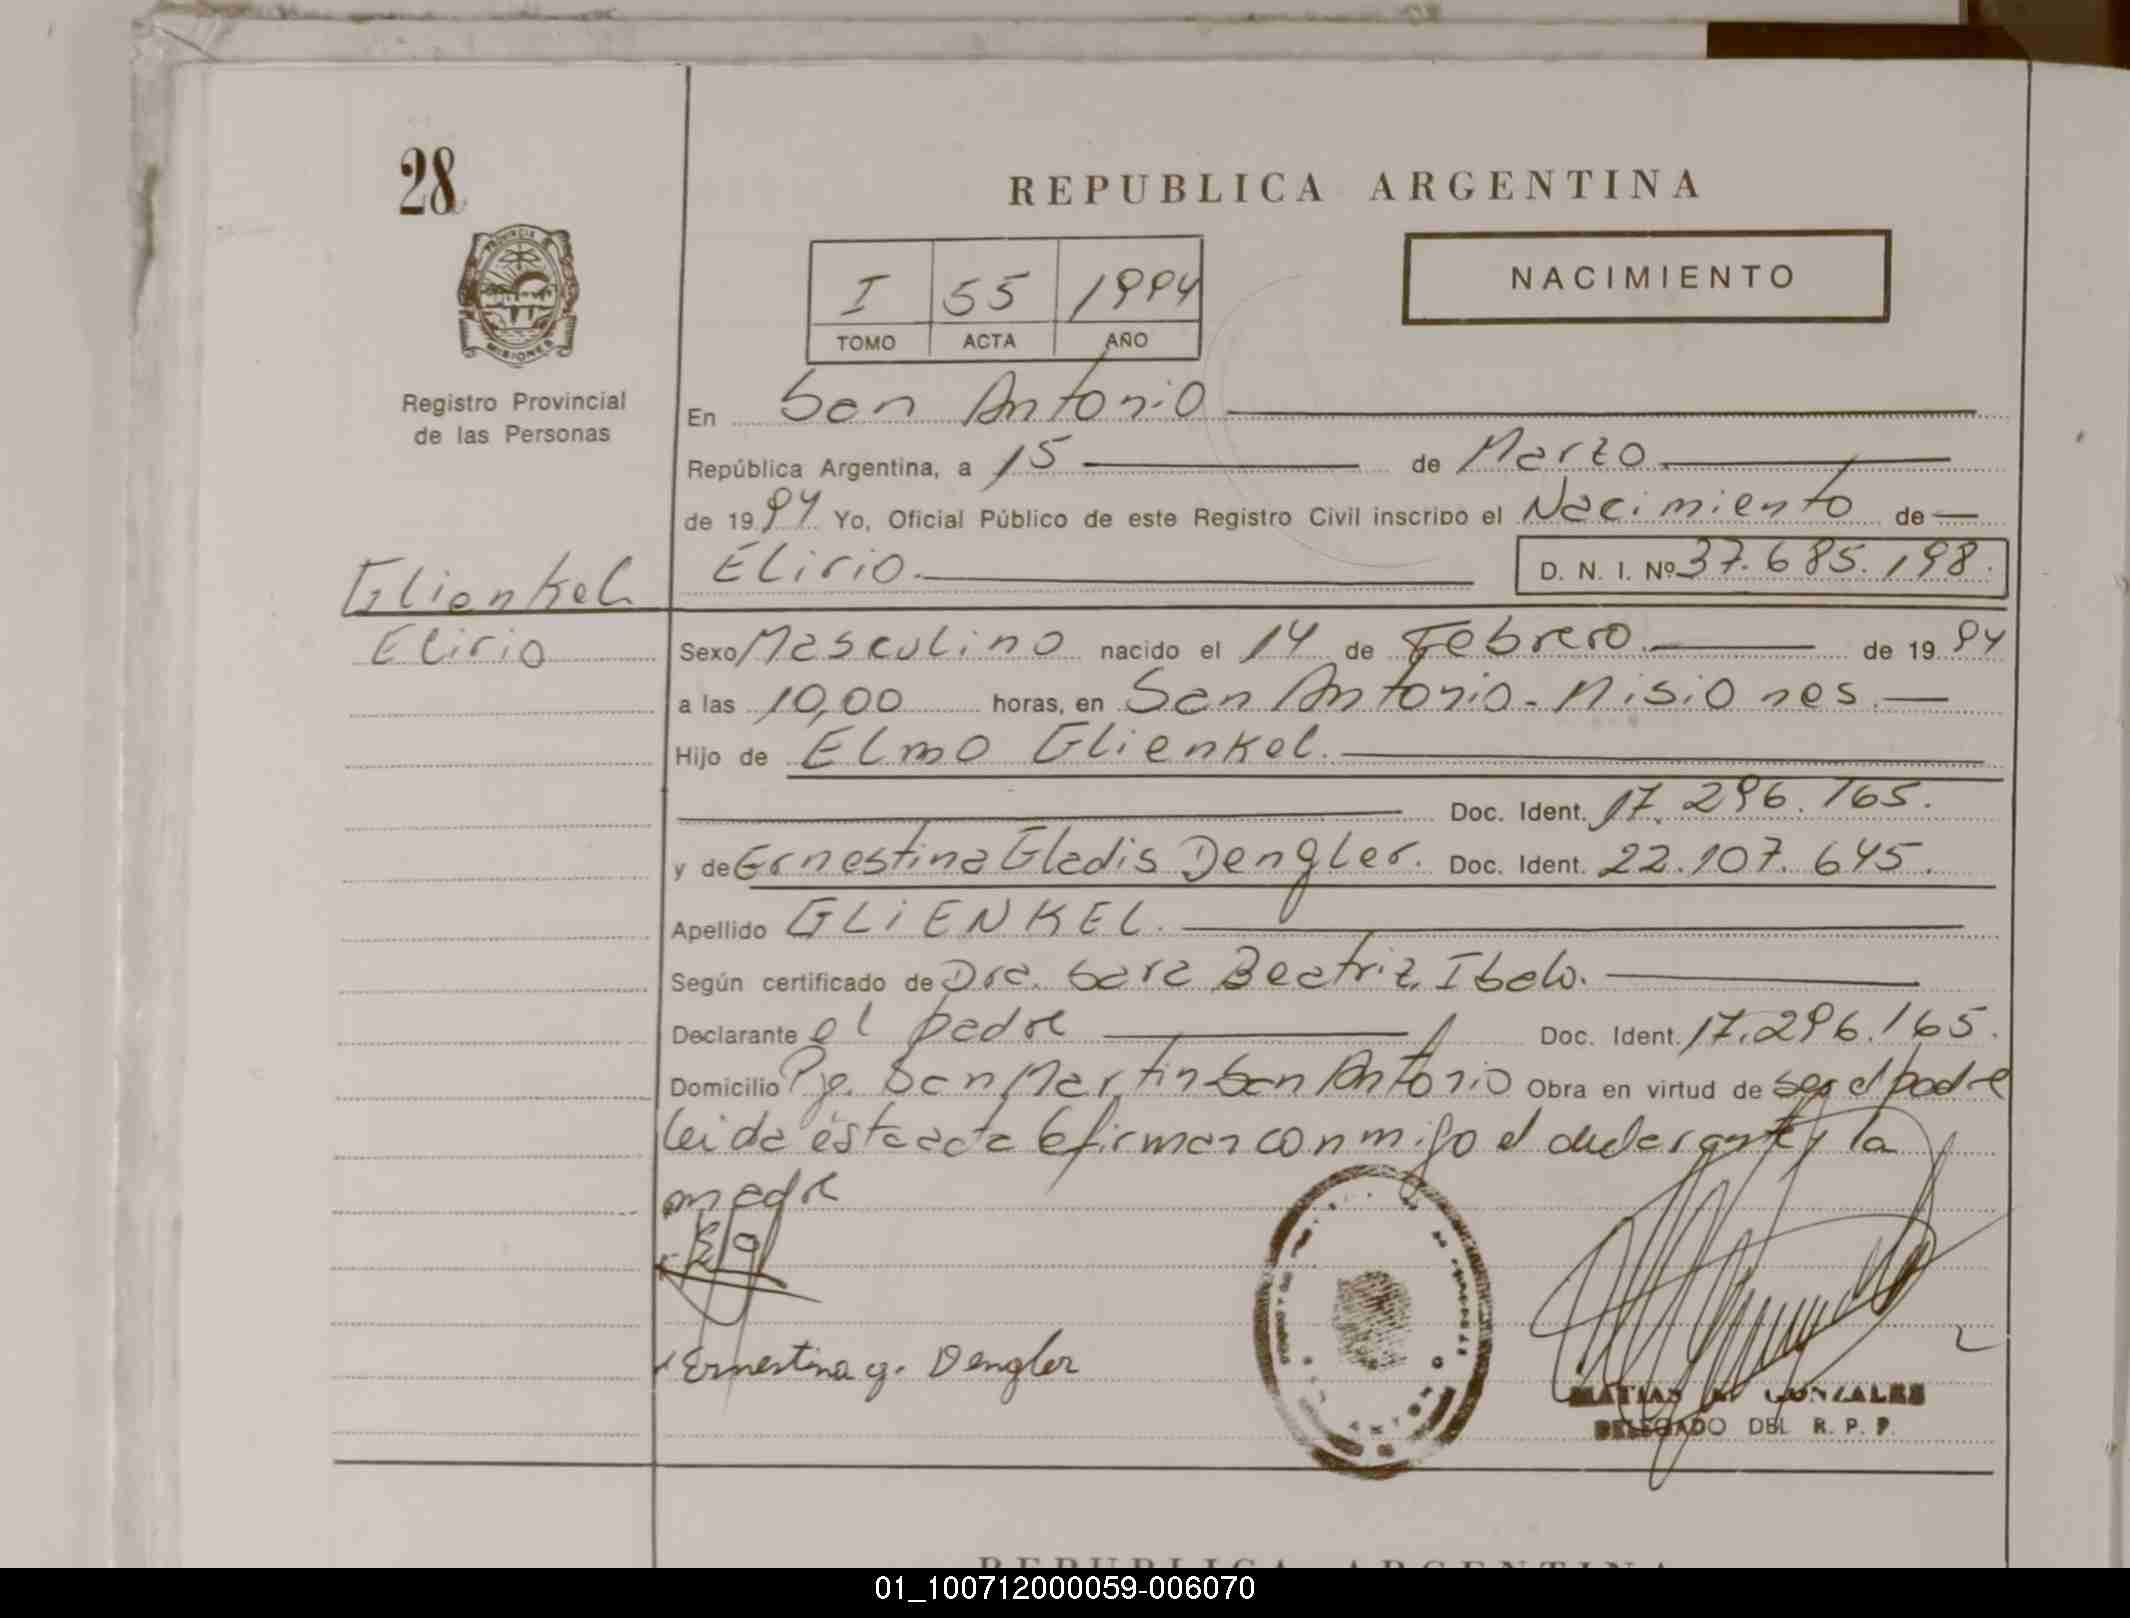 28
REPUBLICA ARGENTINA
PROVINCIA DE
MISIONES
I 55 1994
TOMO ACTA AÑO
NACIMIENTO
Registro Provincial
de las Personas
En San Antonio
República Argentina, a 15 de Marzo
de 1994 Yo, Oficial Público de este Registro Civil inscribo el Nacimiento de
Elirio. D. N. I. Nº 37.685.198.
Glienkel
Elirio
Sexo Masculino nacido el 14 de Febrero. de 1994
a las 10,00 horas, en San Antonio - Misiones.
Hijo de Elmo Glienkel.
Doc. Ident. 17.296.165.
y de Ernestina Gladis Dengler. Doc. Ident. 22.107.645.
Apellido GLIENKEL.
Según certificado de Dra. Sara Beatriz
Declarante el padre Doc. Ident. 17.296.165.
Domicilio Pje. San Martin San Antonio Obra en virtud de ser el padre
leida ésta acta firman conmigo el declarante y la
madre
Ernestina g. Dengler
MATIAS GONZALES
DELEGADO DEL R. P. P.
REPUBLICA ARGENTINA
01_100712000059-006070